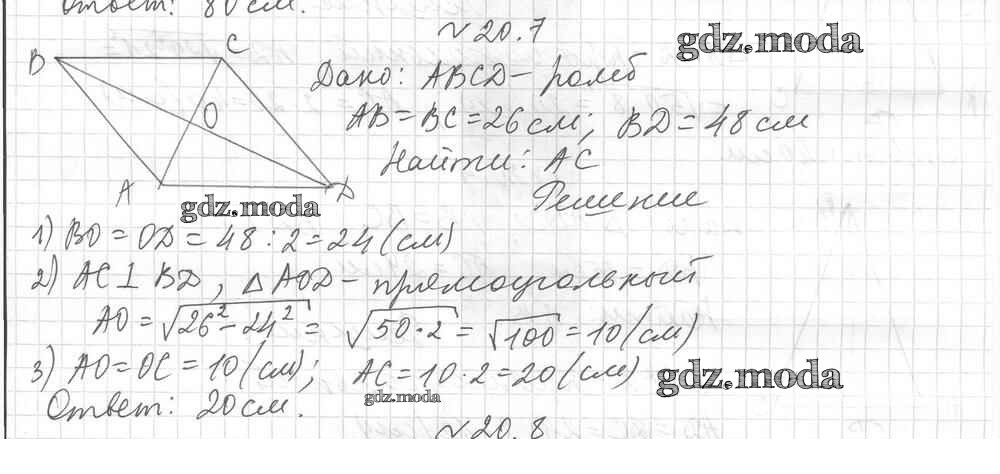 Ответ: 80 см.
№20.7
gdz.moda
B
C
O
A
D
gdz.moda
Дано: ABCD - ромб
AB = BC = 26 см; BD = 48 см
Найти: AC
Решение
1) BO = OD = 48 : 2 = 24 (см)
2) AC ⊥ BD, △ AOD - прямоугольный
AO = √26² - 24² = √50 · 2 = √100 = 10 (см)
3) AO = OC = 10 (см); AC = 10 · 2 = 20 (см)
gdz.moda
Ответ: 20 см.
gdz.moda
№20.8